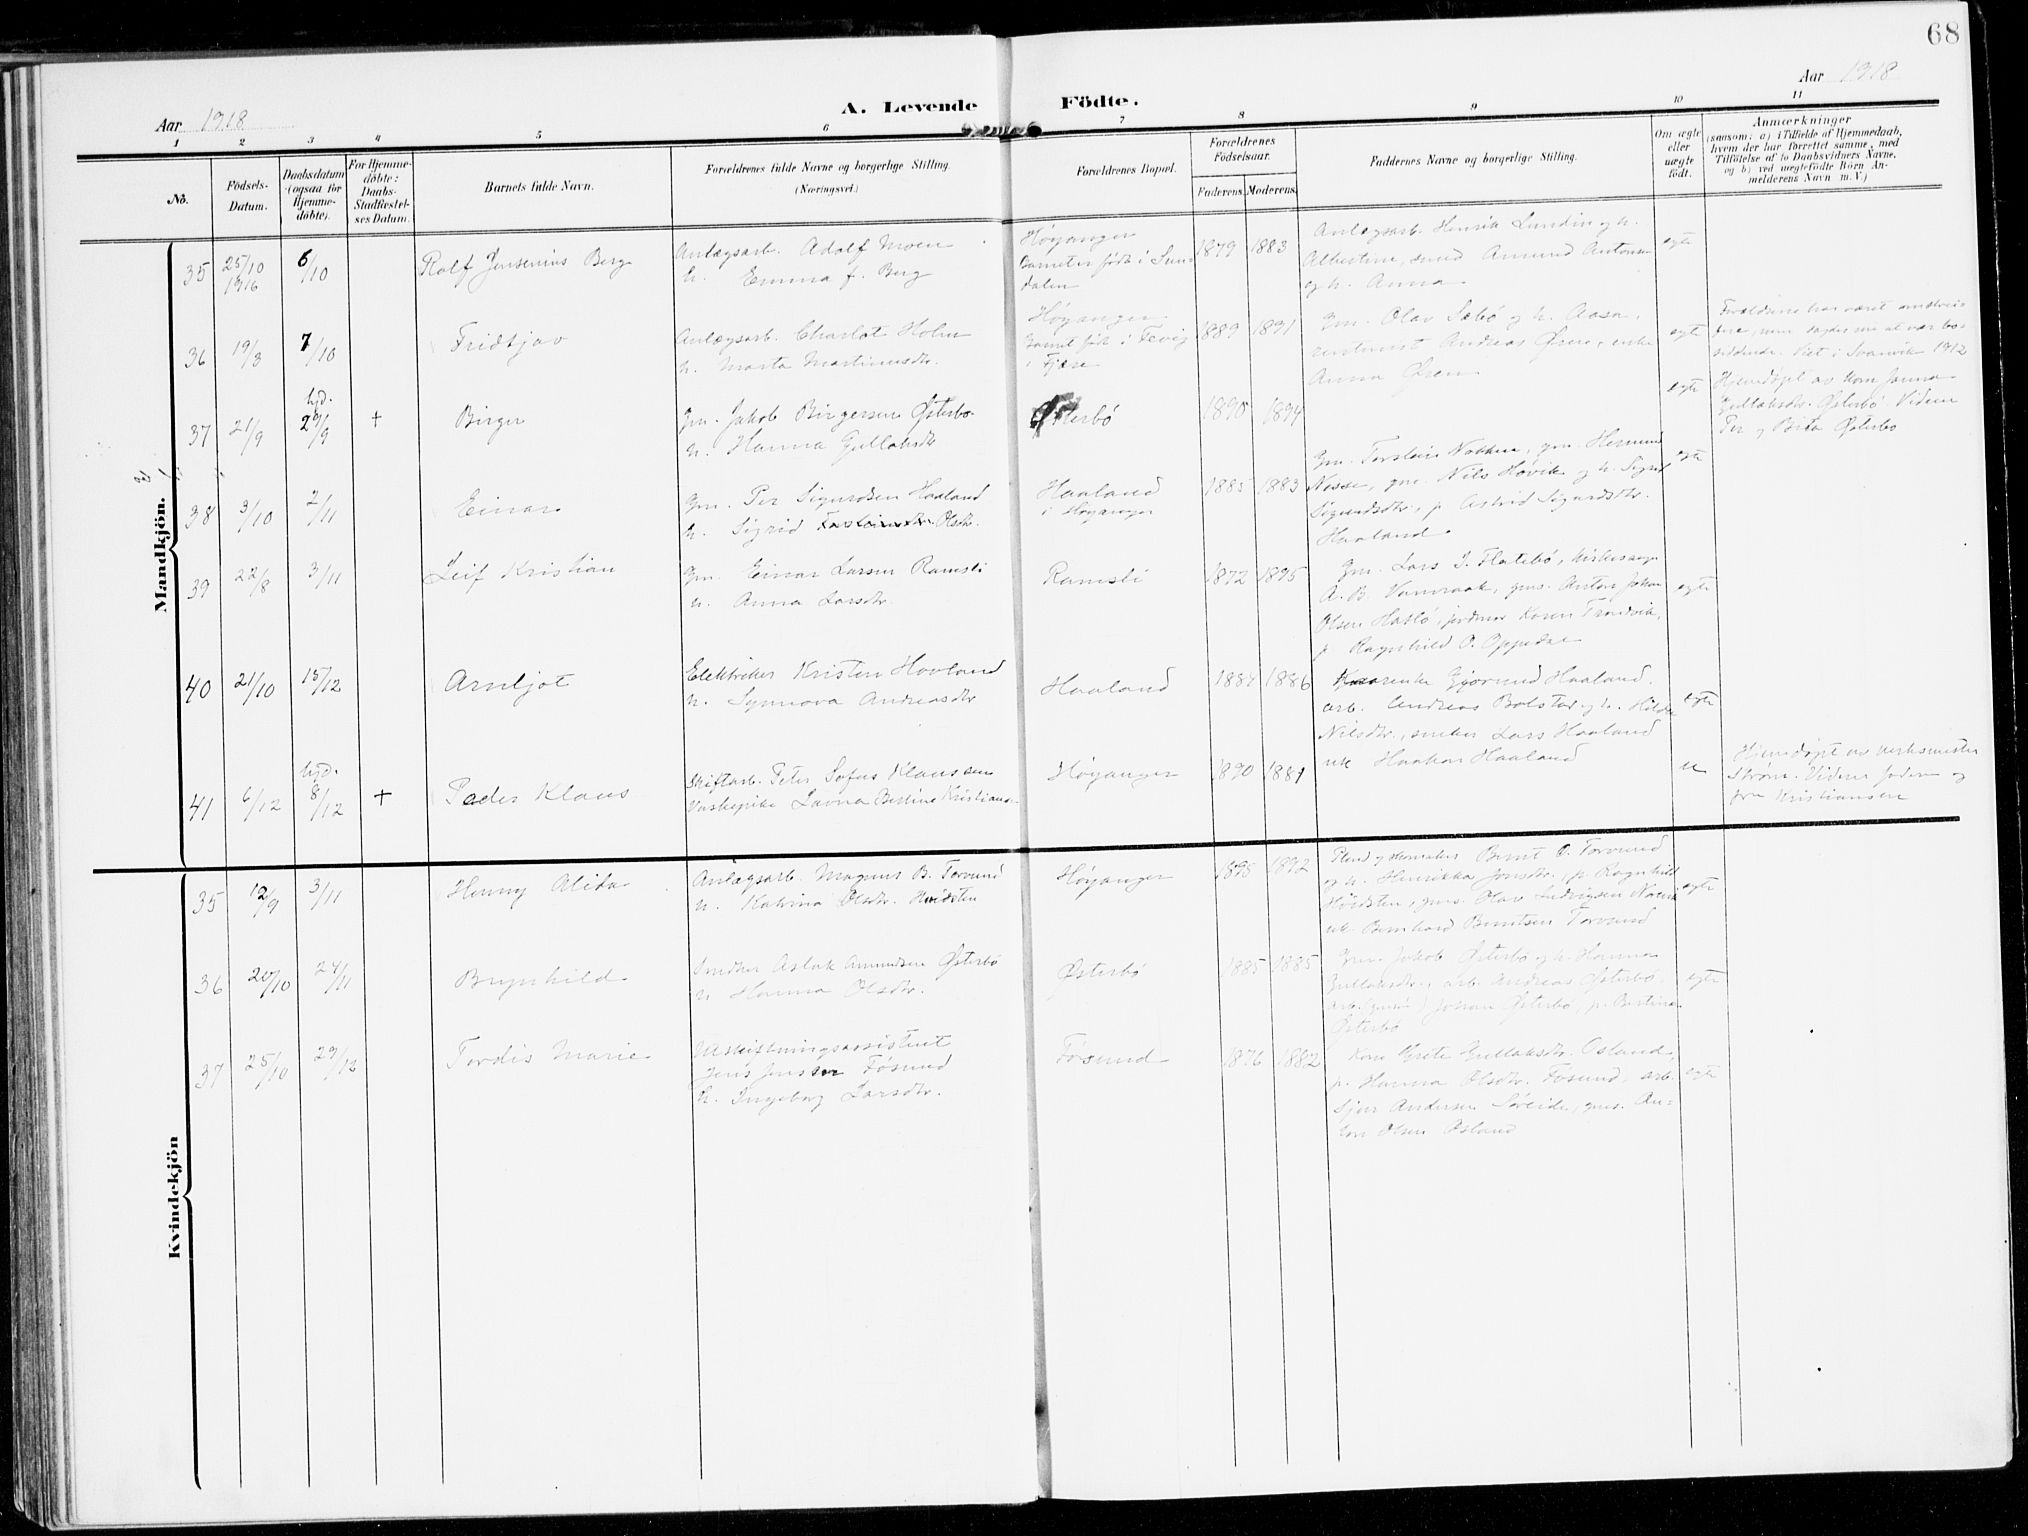 68
Aar 1918
A. Levende Födte.
Aar 1918
1 2 3 4 5 6 7 8 9 10 11
No.
Födsels-Datum.
Daabsdatum (ogsaa for Hjemme-döbte).
For Hjemme-döbte: Daabs-Stadfæstel-ses Datum.
Barnets fulde Navn.
Forældrenes fulde Navne og borgerlige Stilling.
(Næringsvei.)
Forældrenes Bopæl.
Forældrenes Födselsaar.
Faderens. Moderens.
Faddernes Navne og borgerlige Stilling.
Om ægte eller uægte födt.
Anmærkninger
(saasom: a) i Tilfælde af Hjemmedaab,
hvem der har forrettet samme, med
Tilföielse af to Daabsvidners Navne,
og b) ved uægtefödte Börn An-
melderens Navn m. V.)
Mandkjön.
35 25/10 1916 6/10 Rolf Jensenius Berg
Anlægsarb. Adolf Moen
h. Emma f. Berg
Høyanger
Barnet er født i Sun
dalen
1879 1883
Anlægsarb. Henrik Lundin og h.
Albertine, smed Amund Antonsen
og h. Anna
egte
36 19/3 7/10 Fridtjov
Anlægsarb. Charlot Holm
h. Marta Martinusdtr.
Høyanger
Barnet født i Fevig
i Fjære
1889 1891
Gm. Olav Sæbø og h. Aasa,
rentenist Andreas Øren, enke
Anna Øren
egte
Viet i Svanvik 1912
37 21/9 hjd. 29/9 + Birger
Gm. Jakob Birgersen Østerbø
h. Hanna Gullaksdtr
Østerbø
1890 1894
egte
Hjemedøpt av kom Janna
Gullaksdtr. Østerbø. Vidner
Per og Brita Østerbø
38 3/10 2/11 Einar
Gm. Per Sigurdsen Haaland
h. Sigrid Olsdtr.
Haaland
i Høyanger
1885 1883
Gm. Torstein Nakken, gm. Hermund
Nesse, gm. Nils Høvik og h. Sigrid
Sigurdsdtr., p. Astrid Sigurdsdtr.
Haaland
egte
39 22/8 3/11 Leif Kristian
Gm. Einar Larsen Ramsli
h. Anna Larsdtr.
Ramsli
1872 1895
Gm. Lars I. Flatebø, kirkesanger
A. B. Vamraak, gms. Anton Johan
Olsen Hatlø, jordmor Karen Trondvik,
p. Ragnhild O. Oppedal
egte
40 21/10 15/12 Arnljot
Elektriker Kristen Haaland
h. Synnøva Andreasdtr
Haaland
1884 1886
enke Gjørund Haaland.
arb. Andreas Bolstad og h. Hilda
Nilsdtr., snekker Lars Haaland
uk Haakon Haaland
egte
41 6/12 hjd. 8/12 + Peder Klaus
Skiftarb. Peter Sofus Klaussen
Vaskepike Lovna Bertine Kristianse
Høyanger
1890 1881
u
Hjemedøpt av verksmester
Strøm. Vidner Jordm og
fru Kristiansen
Kvindekjön
35 12/9 3/11 Henny Alida
Anlægsarb. Magnus B. Torvund
h. Katrina Olsdtr. Høidsten
Høyanger
1895 1892
Bernt O. Torvund
og h. Henrikka Jonsdtr., p. Ragnhild
Høidsten, gms. Olav Ludvigsen Natvik
uk Bernhard Berntsen Torvund
egte
36 20/10 24/11 Brynhild
Snedker Aslak Amundsen Østerbø
h Hanna Olsdtr.
Østerbø
1885 1885
Gm. Jakob Østerbø og h. Hanna
Gullaksdtr., arb. Andreas Østerbø
arb. Johan Østerbø, p. Bertina
Østerbø
egte
37 25/10 29/12 Tordis Marie
Utskiftningsassistent
Jens Jensen Føsund
h. Ingeborg Larsdtr.
Føsund
1876 1882
Kone Grete Gullaksdtr. Osland,
p. Hanna Olsdtr. Føsund, arb.
Sjur Andersen Søreide, gms. An-
ton Olsen Osland
egte